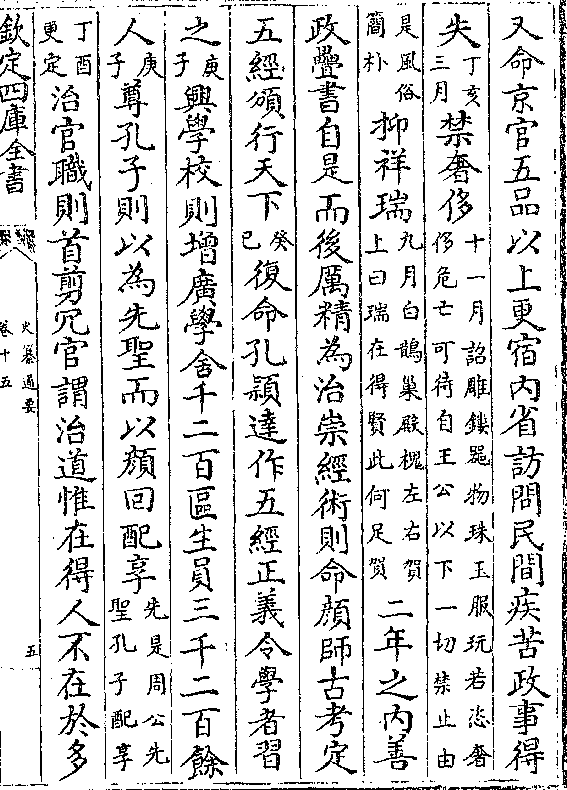 又命京官五品以上更宿内省訪問民間疾苦政事得
失丁亥三月禁奢侈十一月詔雕鏤器物珠玉服玩若恣奢侈危亡可待自王公以下一切禁止由
是風俗簡朴抑祥瑞九月白鵲巢殿槐左右賀上曰瑞在得賢此何足賀二年之内善
政疊書自是而後厲精為治崇經術則命顔師古考定
五經頒行天下癸巳復命孔穎達作五經正義令學者習
之庚子興學校則增廣學舍千二百區生員三千二百餘
人庚子尊孔子則以為先聖而以顔回配享先是周公先聖孔子配享
丁酉更定治官職則首剪冗官謂治道惟在得人不在於多
欽定四庫全書
史纂通要
卷十五
五